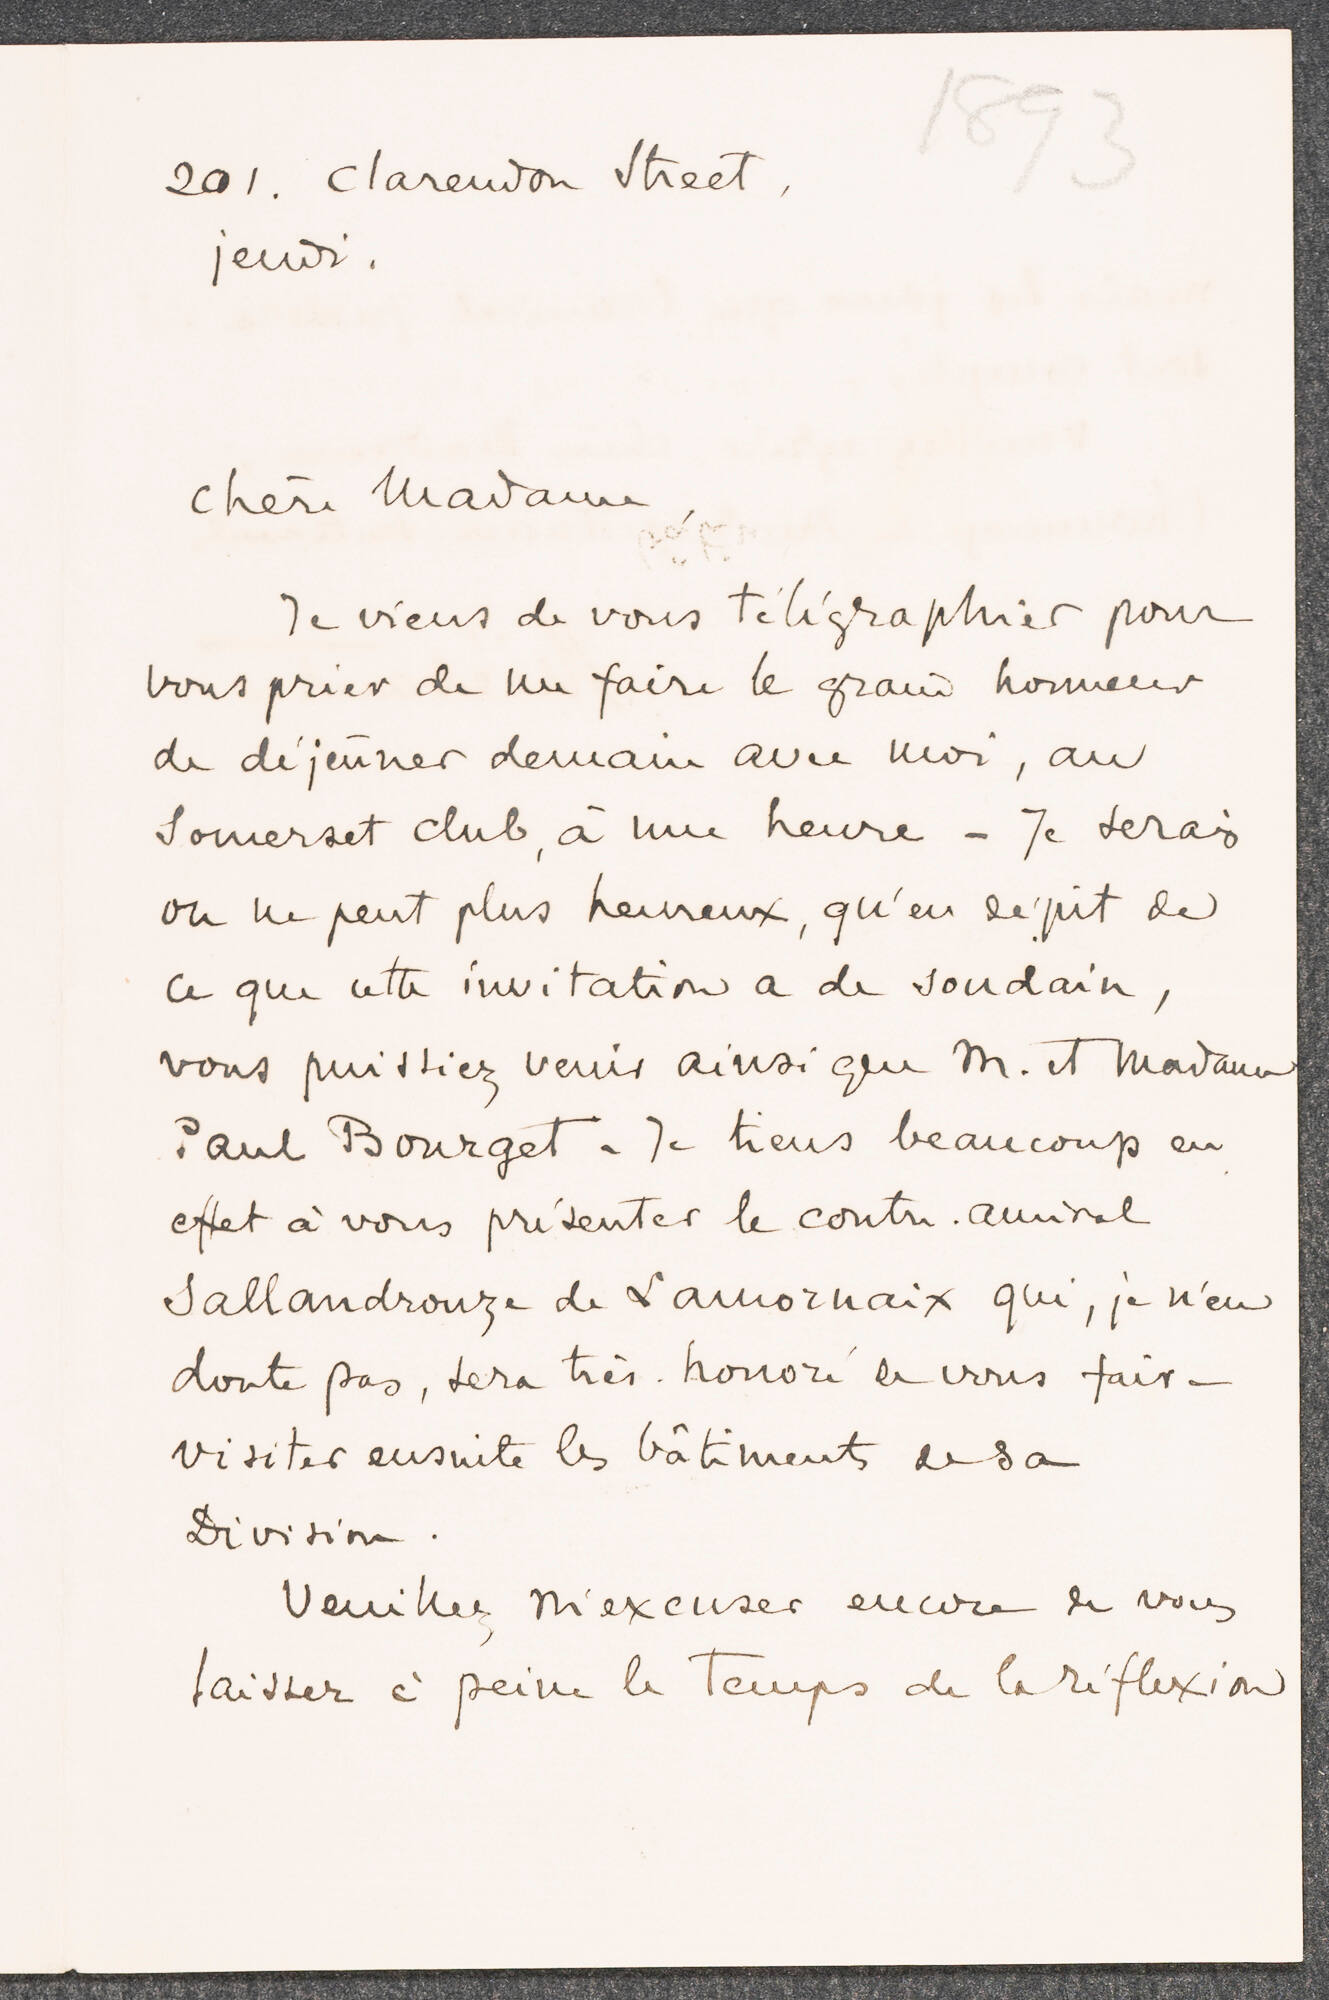 1893
201. Clarendon Street,
jeudi.
Chère Madame,
Je viens de vous télégraphier pour
vous prier de me faire le grand honneur
de déjeûner demain avec moi, au
Somerset Club, à une heure – Je serais
on ne peut plus heureux, qu'en dépit de
ce que cette invitation a de soudain,
vous puissiez venir ainsi que M. et Madame
Paul Bourget – Je tiens beaucoup en
effet à vous présenter le contre-amiral
Sallandrouze de Lamornaix qui, je n'en
doute pas, sera très honoré de vous faire
visiter ensuite les bâtiments de sa
Division.
Veuillez m'excuser encore de vous
laisser à peine le temps de la réflexion